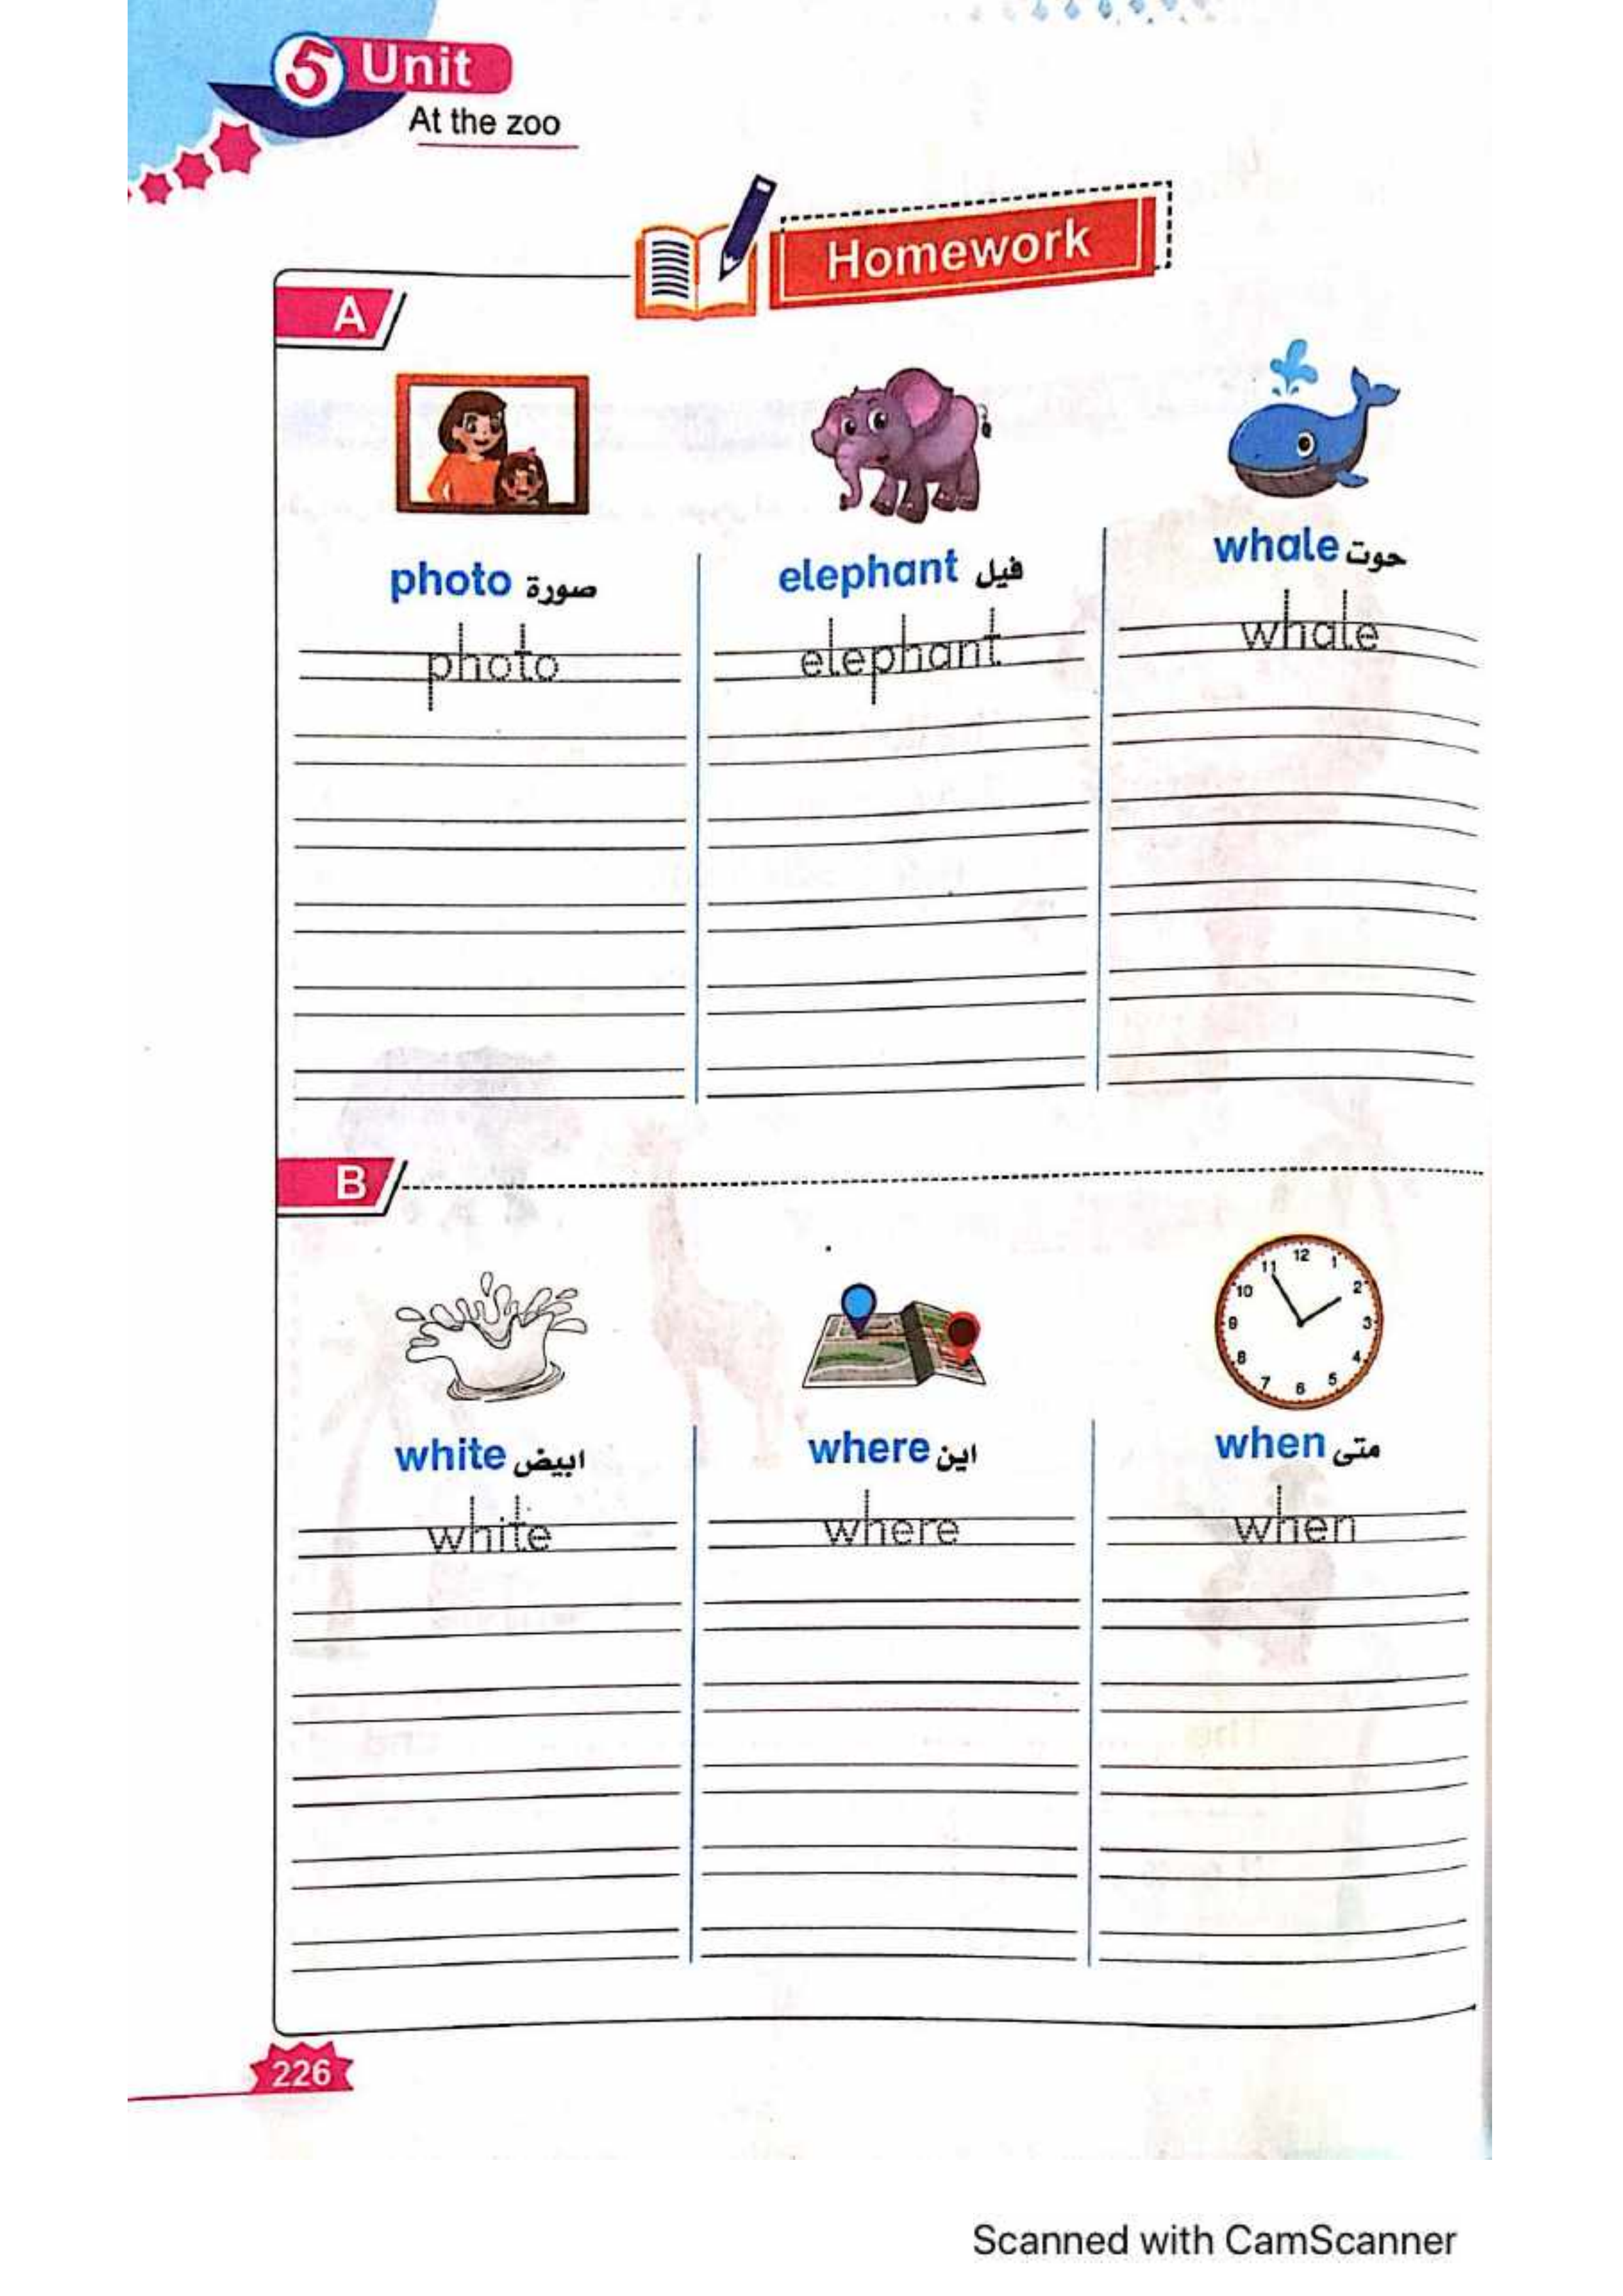 5 Unit
At the zoo
Homework
A
photo صورة
elephant فيل
whale حوت
photo
elephant
whale
B
12
1
2
3
4
5
6
7
8
9
10
11
white ابيض
where اين
when متى
white
where
when
226
Scanned with CamScanner